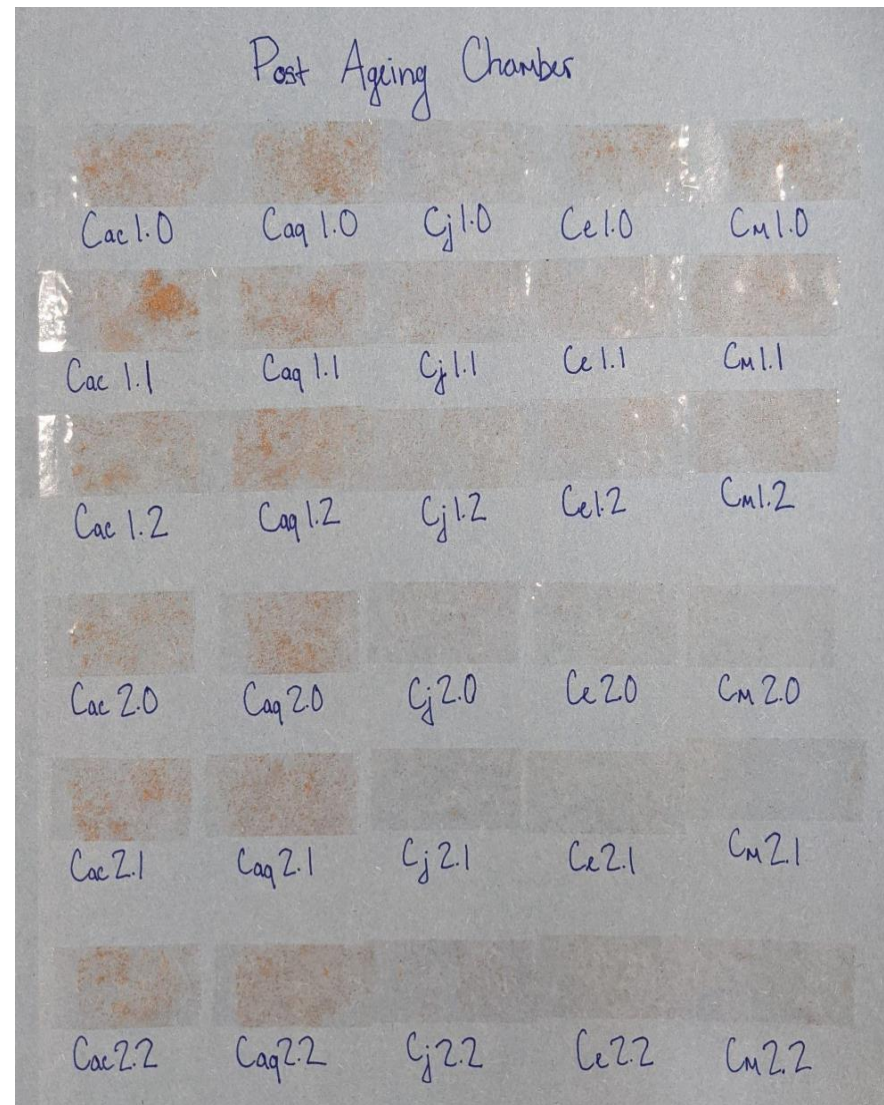 Post Ageing Chamber
Cac 1.0 Caq 1.0 Cj 1.0 Ce 1.0 CM 1.0
Cac 1.1 Caq 1.1 Cj 1.1 Ce 1.1 CM 1.1
Cac 1.2 Caq 1.2 Cj 1.2 Ce 1.2 CM 1.2
Cac 2.0 Caq 2.0 Cj 2.0 Ce 2.0 CM 2.0
Cac 2.1 Caq 2.1 Cj 2.1 Ce 2.1 CM 2.1
Cac 2.2 Caq 2.2 Cj 2.2 Ce 2.2 CM 2.2